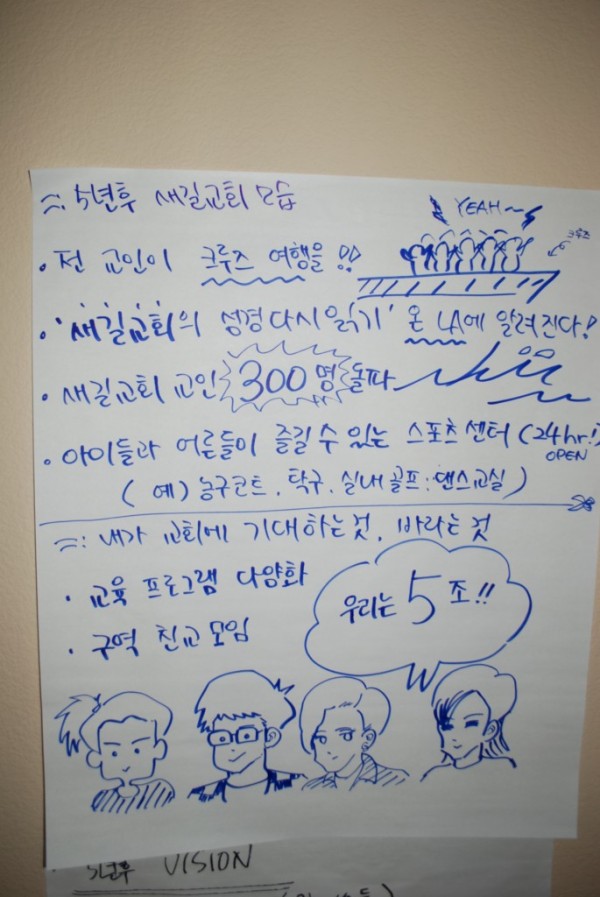 5년후 새길교회 모습
YEAH~
크루즈
• 전 교인이 크루즈 여행을!!
• '새길교회의 성경 다시 읽기' 온 LA에 알려진다!
• 새길교회 교인 300명 돌파
• 아이들과 어른들이 즐길 수 있는 스포츠 센터 (24hr!)
OPEN
(예) 농구코트, 탁구, 실내골프, 댄스교실)
내가 교회에 기대하는 것, 바라는 것
• 교육 프로그램 다양화
• 구역 친교 모임
우리는 5조!!
5년후 VISION